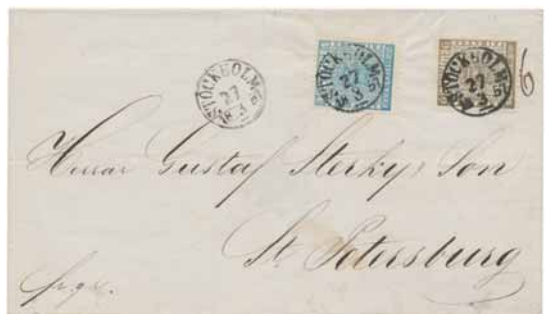 STOCKHOLM
27
3
STOCKHOLM
27
3
STOCKHOLM
27
3
6
Herrar Gustaf Sterky & Son
St Petersburg